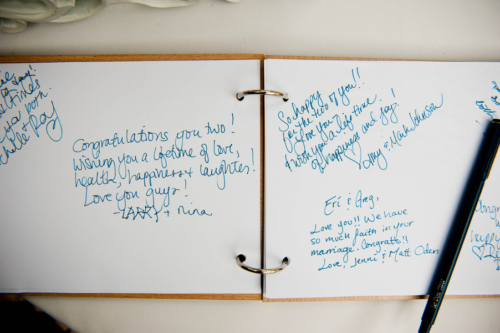 times
Congratulations you two!
Wishing you a lifetime of love,
health, happiness & laughter!
Love you guys!
- LARRY + Nina
So happy
for the two of you!!
Love you?
I wish you a life time
of happiness and joy!
& Johnson
Eri & Greg,
Love you!! We have
so much faith in your
marriage. Congrats!!
Love, Jenni & Matt Oden